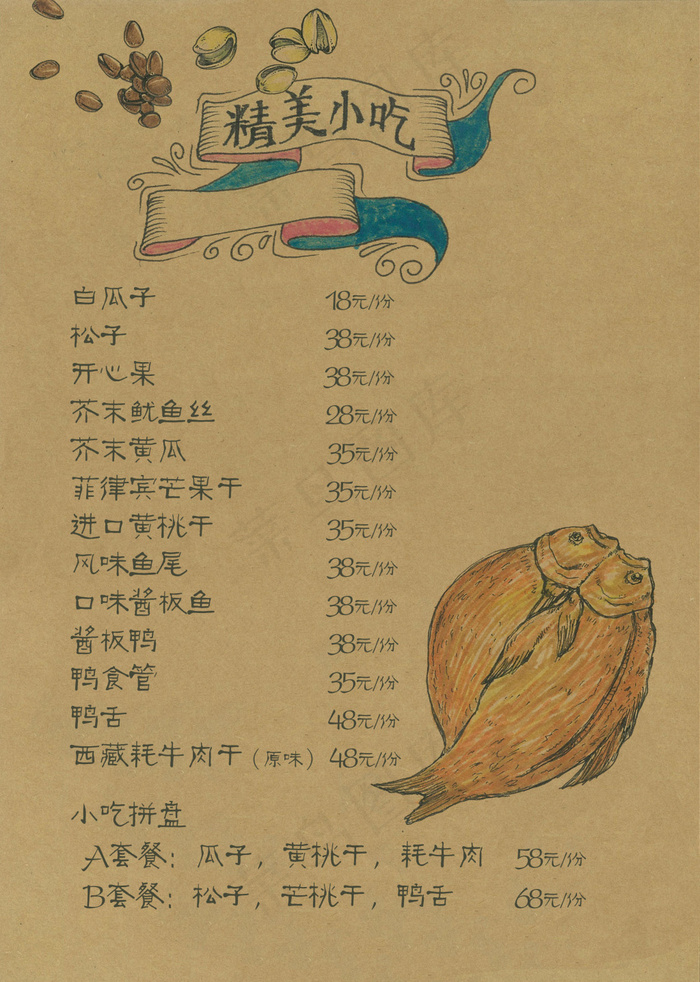 精美小吃
白瓜子 18元/份
松子 38元/份
开心果 38元/份
芥末鱿鱼丝 28元/份
芥末黄瓜 35元/份
菲律宾芒果干 35元/份
进口黄桃干 35元/份
风味鱼尾 38元/份
口味酱板鱼 38元/份
酱板鸭 38元/份
鸭食管 35元/份
鸭舌 48元/份
西藏耗牛肉干(原味) 48元/份
小吃拼盘
A套餐: 瓜子, 黄桃干, 耗牛肉 58元/份
B套餐: 松子, 芒桃干, 鸭舌 68元/份